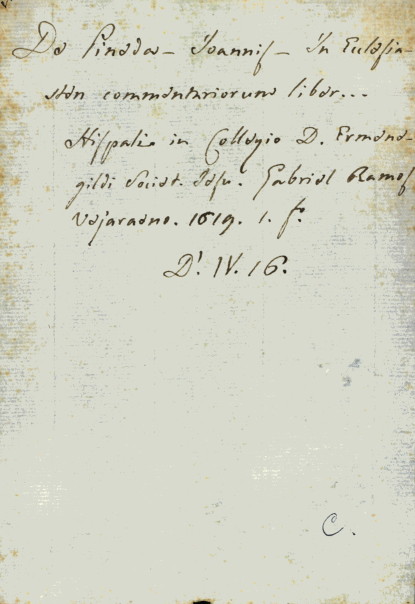 De Pineda - Joannis - In Eclesia-
sten commentariorum liber...
Hispalis in Collegio D. Ermene-
gildi Societ. Jesu. Gabriel Ramos
Vejarano. 1619. 1. fº.
D'. IV. 16.
C.